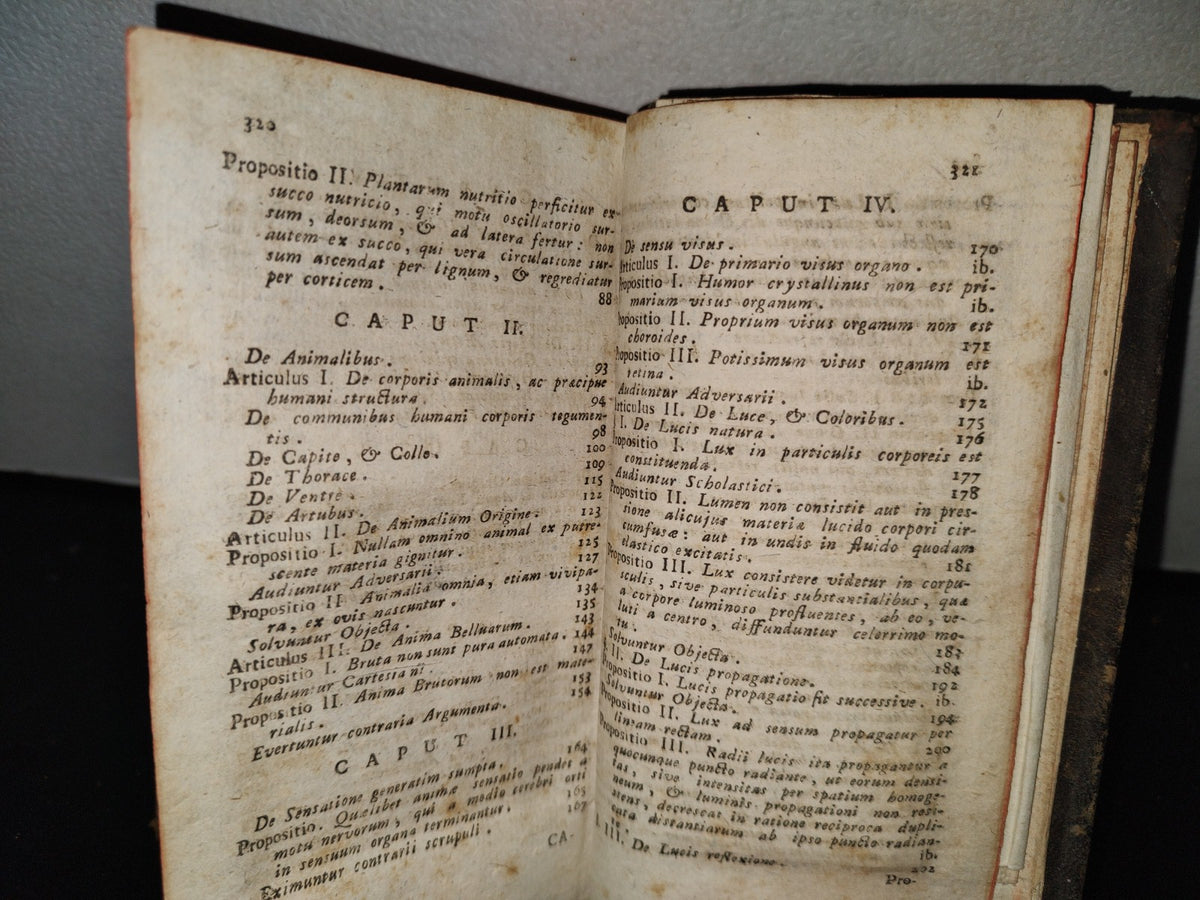 320
Propositio II. Plantarum nutritio perficitur ex
succo nutricio, qui motu oscillatorio sur-
sum, deorsum, & ad latera fertur: non
autem ex succo, qui vera circulatione sur-
sum ascendat per lignum, & regrediatur
per corticem. 88
CAPUT II.
De Animalibus. 93
Articulus I. De corporis animalis, ac præcipue
humani structura. 94
De communibus humani corporis tegumen-
tis. 98
De Capite, & Collo. 100
De Thorace. 109
De Ventre. 115
De Artubus. 122
Articulus II. De Animalium Origine. 123
Propositio I. Nullum omnino animal ex putre-
scente materia gignitur. 125
Audiuntur Adversarii. 127
Propositio II. Animalia omnia, etiam vivipa-
ra, ex ovis nascuntur. 134
Solvuntur Objecta. 135
Articulus III. De Anima Belluarum. 143
Propositio I. Bruta non sunt pura automata. 144
Audiuntur Cartesiani. 147
Propositio II. Anima Brutorum non est mate-
rialis. 153
Evertuntur contraria Argumenta. 154
CAPUT III.
De Sensatione generatim sumpta. 164
Propositio. Quælibet animæ sensatio pendet a
motu nervorum, qui a medio cerebri orti
in sensuum organa terminantur. 165
Eximuntur contrarii scrupuli. 167
CA-
321
CAPUT IV.
De sensu visus. 170
Articulus I. De primario visus organo. ib.
Propositio I. Humor crystallinus non est pri-
marium visus organum. ib.
Propositio II. Proprium visus organum non est
choroides. 171
Propositio III. Potissimum visus organum est
retina. ib.
Audiuntur Adversarii. 172
Articulus II. De Luce, & Coloribus. 175
I. De Lucis natura. 176
Propositio I. Lux in particulis corporeis est
constituenda. 177
Audiuntur Scholastici. 178
Propositio II. Lumen non consistit aut in pres-
sione alicujus materiæ lucido corpori cir-
cumfusæ: aut in undis in fluido quodam
elastico excitatis. 181
Propositio III. Lux consistere videtur in corpu-
sculis, sive particulis substantialibus, quæ
a corpore luminoso profluentes, ab eo, ve-
luti a centro, diffunduntur celerrimo mo-
tu. 183
Solvuntur Objecta. 184
II. De Lucis propagatione. 192
Propositio I. Lucis propagatio fit successive. ib.
Solvuntur Objecta. 194
Propositio II. Lux ad sensum propagatur per
lineam rectam. 200
Propositio III. Radii lucis ita propagantur a
quocunque puncto radiante, ut eorum densi-
tas, sive intensitas per spatium homoge-
neum, & luminis propagationi non resi-
stens, decrescat in ratione reciproca dupli-
cata distantiarum ab ipso puncto radian-
te. ib.
III. De Lucis reflexione. 202
Pro-